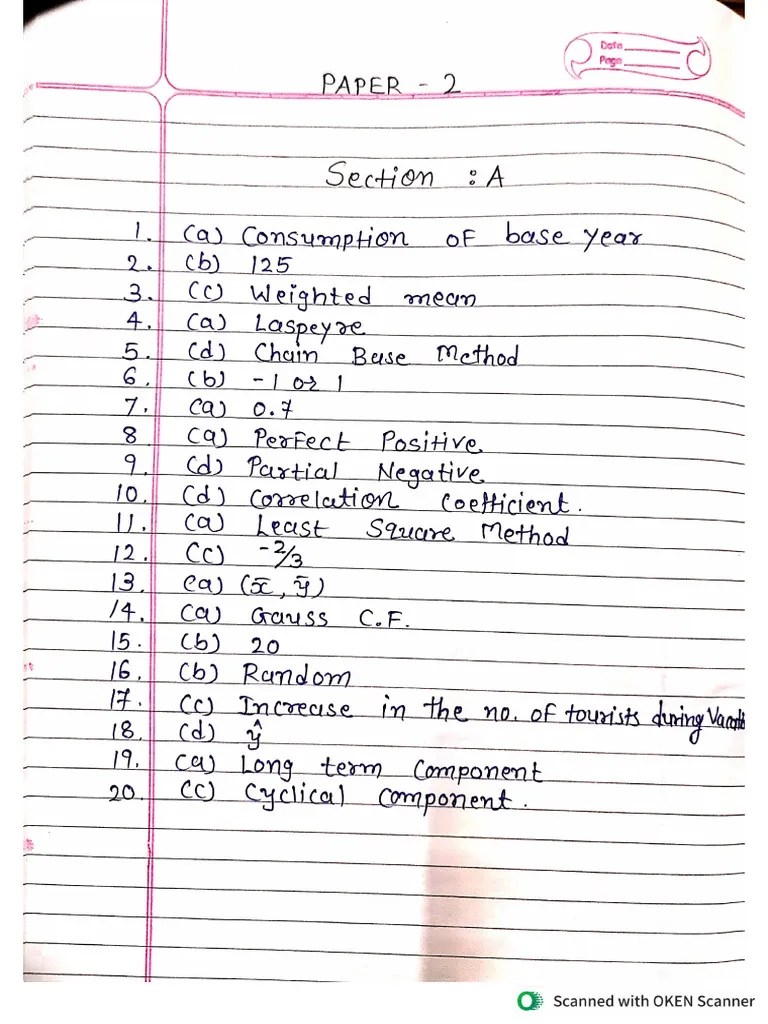 Date
Page
PAPER - 2
Section : A
1. (a) Consumption of base year
2. (b) 125
3. (c) Weighted mean
4. (a) Laspeyre
5. (d) Chain Base Method
6. (b) -1 or 1
7. (a) 0.7
8 (a) Perfect Positive
9. (d) Partial Negative
10. (d) Correlation Coefficient.
11. (a) Least Square Method
12. (c) -2/3
13. (a) (x̄, ȳ)
14. (a) Gauss C.F.
15. (b) 20
16. (b) Random
17. (c) Increase in the no. of tourists during
18. (d) ŷ
19. (a) Long term Component
20. (c) Cyclical Component.
Scanned with OKEN Scanner